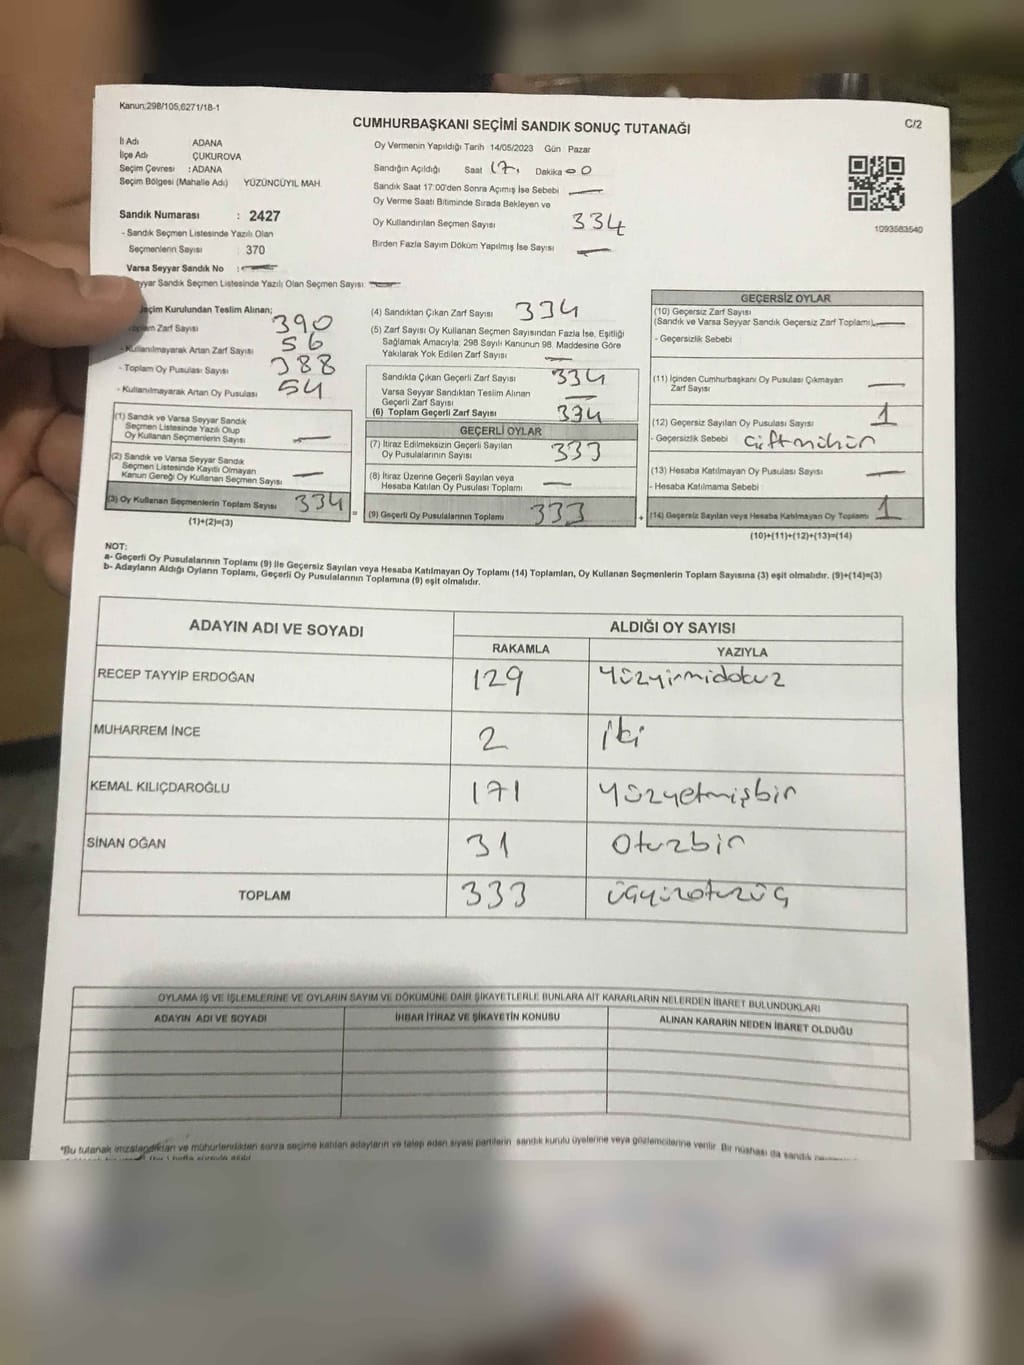 Kanun:298/105,6271/18-1
C/2
CUMHURBAŞKANI SEÇİMİ SANDIK SONUÇ TUTANAĞI
İl Adı ADANA
İlçe Adı ÇUKUROVA
Seçim Çevresi : ADANA
Seçim Bölgesi (Mahalle Adı) YÜZÜNCÜYIL MAH.
Sandık Numarası : 2427
- Sandık Seçmen Listesinde Yazılı Olan
Seçmenlerin Sayısı 370
Varsa Seyyar Sandık No :
Sandık Seçmen Listesinde Yazılı Olan Seçmen Sayısı:
Oy Vermenin Yapıldığı Tarih 14/05/2023 Gün : Pazar
Sandığın Açıldığı Saat 17. Dakika 00
Sandık Saat 17:00'den Sonra Açmış İse Sebebi
Oy Verme Saati Bitiminde Sırada Bekleyen ve
Oy Kullandırılan Seçmen Sayısı 334
Birden Fazla Sayım Döküm Yapılmış İse Sayısı
1093583540
Kurulundan Teslim Alınan;
Zarf Sayısı 390
- Kullanılmayarak Artan Zarf Sayısı 56
- Toplam Oy Pusulası Sayısı 388
- Kullanılmayarak Artan Oy Pusulası 54
(1) Sandık ve Varsa Seyyar Sandık
Seçmen Listesinde Yazılı Olup
Oy Kullanan Seçmenlerin Sayısı
(2) Sandık ve Varsa Seyyar Sandık
Seçmen Listesinde Kayıtlı Olmayan
Kanun Gereği Oy Kullanan Seçmen Sayısı
(3) Oy Kullanan Seçmenlerin Toplam Sayısı 334
(1)+(2)=(3)
(4) Sandıktan Çıkan Zarf Sayısı 334
(5) Zarf Sayısı Oy Kullanan Seçmen Sayısından Fazla İse, Eşitliği
Sağlamak Amacıyla, 298 Sayılı Kanunun 98. Maddesine Göre
Yakılarak Yok Edilen Zarf Sayısı
Sandıkta Çıkan Geçerli Zarf Sayısı 334
Varsa Seyyar Sandıktan Teslim Alınan
Geçerli Zarf Sayısı
(6) Toplam Geçerli Zarf Sayısı 334
GEÇERLİ OYLAR
(7) İtiraz Edilmeksizin Geçerli Sayılan
Oy Pusulalarının Sayısı 333
(8) İtiraz Üzerine Geçerli Sayılan veya
Hesaba Katılan Oy Pusulası Toplamı
=
(9) Geçerli Oy Pusulalarının Toplamı 333
+
GEÇERSİZ OYLAR
(10) Geçersiz Zarf Sayısı
(Sandık ve Varsa Seyyar Sandık Geçersiz Zarf Toplamı)
- Geçersizlik Sebebi
(11) İçinden Cumhurbaşkanı Oy Pusulası Çıkmayan
Zarf Sayısı
(12) Geçersiz Sayılan Oy Pusulası Sayısı 1
- Geçersizlik Sebebi çift mühür
(13) Hesaba Katılmayan Oy Pusulası Sayısı
- Hesaba Katılmama Sebebi
(14) Geçersiz Sayılan veya Hesaba Katılmayan Oy Toplamı 1
(10)+(11)+(12)+(13)=(14)
NOT:
a- Geçerli Oy Pusulalarının Toplamı (9) ile Geçersiz Sayılan veya Hesaba Katılmayan Oy Toplamı (14) Toplamları, Oy Kullanan Seçmenlerin Toplam Sayısına (3) eşit olmalıdır. (9)+(14)=(3)
b- Adayların Aldığı Oyların Toplamı, Geçerli Oy Pusulalarının Toplamına (9) eşit olmalıdır.
ADAYIN ADI VE SOYADI
ALDIĞI OY SAYISI
RAKAMLA YAZIYLA
RECEP TAYYİP ERDOĞAN 129 Yüzyirmidokuz
MUHARREM İNCE 2 İki
KEMAL KILIÇDAROĞLU 171 Yüzyetmişbir
SİNAN OĞAN 31 Otuzbir
TOPLAM 333 üçyüzotuzüç
OYLAMA İŞ VE İŞLEMLERİNE VE OYLARIN SAYIM VE DÖKÜMÜNE DAİR ŞİKAYETLERLE BUNLARA AİT KARARLARIN NELERDEN İBARET BULUNDUKLARI
ADAYIN ADI VE SOYADI İHBAR İTİRAZ VE ŞİKAYETİN KONUSU ALINAN KARARIN NEDEN İBARET OLDUĞU
*Bu tutanak imzalandıktan ve mühürlendikten sonra seçime katılan adayların ve talep eden siyasi partilerin sandık kurulu üyelerine veya gözlemcilerine verilir. Bir nüshası da sandık